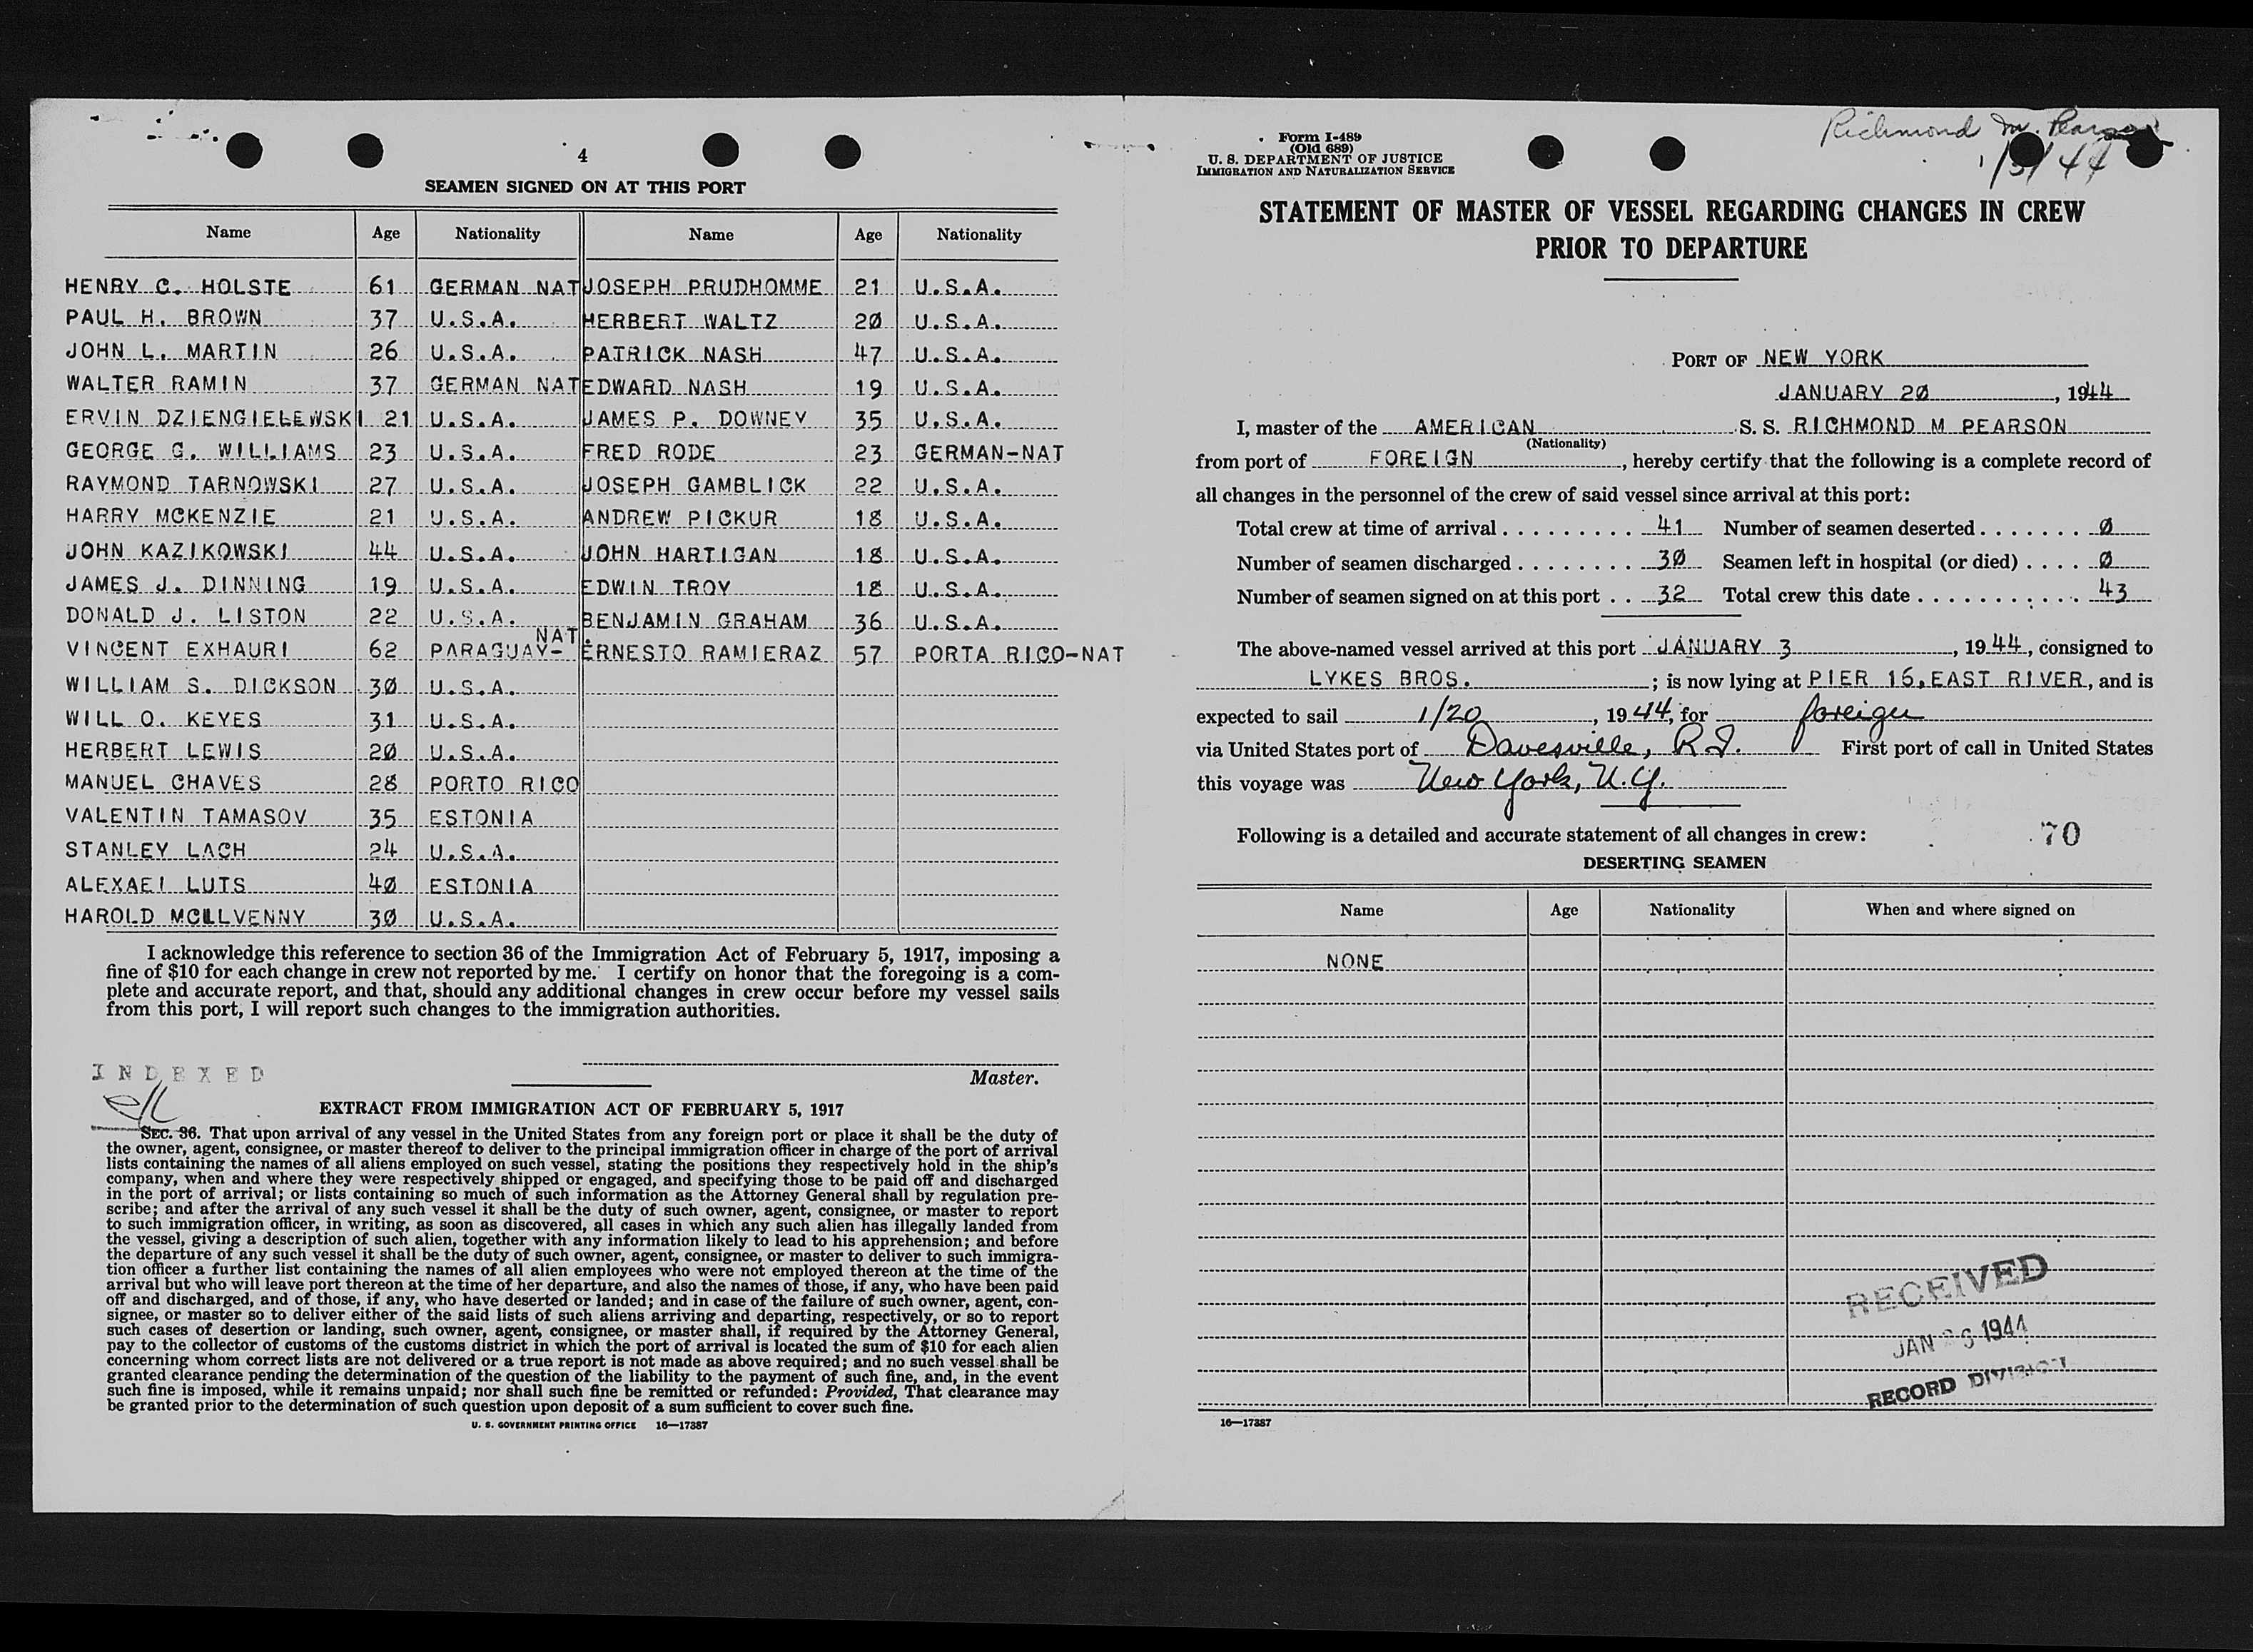 4
SEAMEN SIGNED ON AT THIS PORT
Name Age Nationality Name Age Nationality
HENRY C. HOLSTE 61 GERMAN NAT JOSEPH PRUDHOMME 21 U.S.A.
PAUL H. BROWN 37 U.S.A. HERBERT WALTZ 20 U.S.A.
JOHN L. MARTIN 26 U.S.A. PATRICK NASH 47 U.S.A.
WALTER RAMIN 37 GERMAN NAT EDWARD NASH 19 U.S.A.
ERVIN DZIENGIELEWSKI 21 U.S.A. JAMES P. DOWNEY 35 U.S.A.
GEORGE G. WILLIAMS 23 U.S.A. FRED RODE 23 GERMAN-NAT
RAYMOND TARNOWSKI 27 U.S.A. JOSEPH GAMBLICK 22 U.S.A.
HARRY MCKENZIE 21 U.S.A. ANDREW PICKUR 18 U.S.A.
JOHN KAZIKOWSKI 44 U.S.A. JOHN HARTIGAN 18 U.S.A.
JAMES J. DINNING 19 U.S.A. EDWIN TROY 18 U.S.A.
DONALD J. LISTON 22 U.S.A. BENJAMIN GRAHAM 36 U.S.A.
VINCENT EXHAURI 62 PARAGUAY-NAT. ERNESTO RAMIERAZ 57 PORTA RICO-NAT
WILLIAM S. DICKSON 30 U.S.A.
WILL O. KEYES 31 U.S.A.
HERBERT LEWIS 20 U.S.A.
MANUEL CHAVES 28 PORTO RICO
VALENTIN TAMASOV 35 ESTONIA
STANLEY LACH 24 U.S.A.
ALEXAEI LUTS 40 ESTONIA
HAROLD MCILVENNY 30 U.S.A.
I acknowledge this reference to section 36 of the Immigration Act of February 5, 1917, imposing a
fine of $10 for each change in crew not reported by me. I certify on honor that the foregoing is a com-
plete and accurate report, and that, should any additional changes in crew occur before my vessel sails
from this port, I will report such changes to the immigration authorities.
Master.
INDEXED
EXTRACT FROM IMMIGRATION ACT OF FEBRUARY 5, 1917
SEC. 36. That upon arrival of any vessel in the United States from any foreign port or place it shall be the duty of
the owner, agent, consignee, or master thereof to deliver to the principal immigration officer in charge of the port of arrival
lists containing the names of all aliens employed on such vessel, stating the positions they respectively hold in the ship's
company, when and where they were respectively shipped or engaged, and specifying those to be paid off and discharged
in the port of arrival; or lists containing so much of such information as the Attorney General shall by regulation pre-
scribe; and after the arrival of any such vessel it shall be the duty of such owner, agent, consignee, or master to report
to such immigration officer, in writing, as soon as discovered, all cases in which any such alien has illegally landed from
the vessel, giving a description of such alien, together with any information likely to lead to his apprehension; and before
the departure of any such vessel it shall be the duty of such owner, agent, consignee, or master to deliver to such immigra-
tion officer a further list containing the names of all alien employees who were not employed thereon at the time of the
arrival but who will leave port thereon at the time of her departure, and also the names of those, if any, who have been paid
off and discharged, and of those, if any, who have deserted or landed; and in case of the failure of such owner, agent, con-
signee, or master so to deliver either of the said lists of such aliens arriving and departing, respectively, or so to report
such cases of desertion or landing, such owner, agent, consignee, or master shall, if required by the Attorney General,
pay to the collector of customs of the customs district in which the port of arrival is located the sum of $10 for each alien
concerning whom correct lists are not delivered or a true report is not made as above required; and no such vessel shall be
granted clearance pending the determination of the question of the liability to the payment of such fine, and, in the event
such fine is imposed, while it remains unpaid; nor shall such fine be remitted or refunded: Provided, That clearance may
be granted prior to the determination of such question upon deposit of a sum sufficient to cover such fine.
U. S. GOVERNMENT PRINTING OFFICE 16—17387
Form I-489
(Old 689)
U. S. DEPARTMENT OF JUSTICE
IMMIGRATION AND NATURALIZATION SERVICE
Richmond M. Pearson
1/3/44
STATEMENT OF MASTER OF VESSEL REGARDING CHANGES IN CREW
PRIOR TO DEPARTURE
PORT OF NEW YORK
JANUARY 20, 1944
I, master of the AMERICAN S. S. RICHMOND M PEARSON
(Nationality)
from port of FOREIGN, hereby certify that the following is a complete record of
all changes in the personnel of the crew of said vessel since arrival at this port:
Total crew at time of arrival 41 Number of seamen deserted 0
Number of seamen discharged 30 Seamen left in hospital (or died) 0
Number of seamen signed on at this port 32 Total crew this date 43
The above-named vessel arrived at this port JANUARY 3, 1944, consigned to
LYKES BROS.; is now lying at PIER 16, EAST RIVER, and is
expected to sail 1/20, 1944, for foreign
via United States port of Davesville, R.I. First port of call in United States
this voyage was New York, N.Y.
Following is a detailed and accurate statement of all changes in crew:
70
DESERTING SEAMEN
Name Age Nationality When and where signed on
NONE
RECEIVED
JAN 26 1944
RECORD DIVISION
16—17387